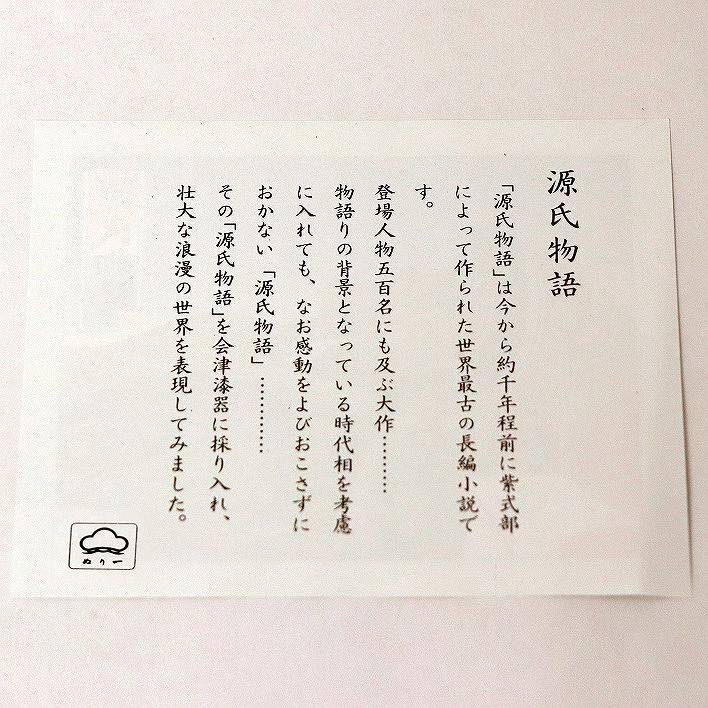 源氏物語
「源氏物語」は今から約千年程前に紫式部
によって作られた世界最古の長編小説で
す。
登場人物五百名にも及ぶ大作………
物語りの背景となっている時代相を考慮
に入れても、なお感動をよびおこさずに
おかない「源氏物語」…………
その「源氏物語」を会津漆器に採り入れ、
壮大な浪漫の世界を表現してみました。
ぬり一